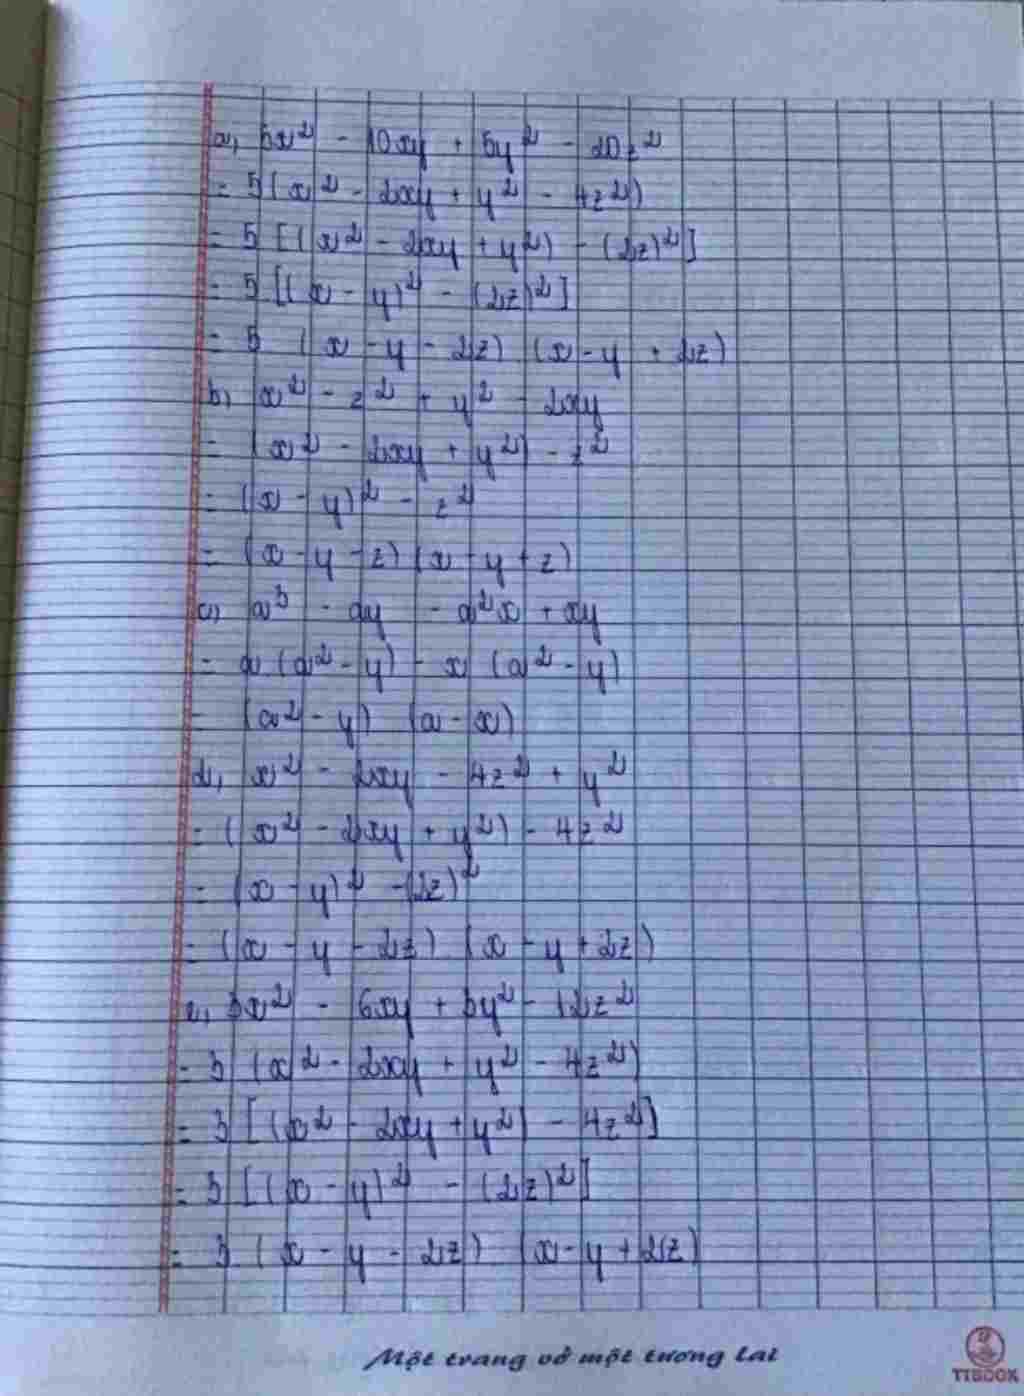 a, 5x² - 10xy + 5y² - 20z²
= 5(x² - 2xy + y² - 4z²)
= 5 [(x² - 2xy + y²) - (2z)²]
= 5 [(x - y)² - (2z)²]
= 5 (x - y - 2z) (x - y + 2z)
b) x² - z² + y² - 2xy
= (x² - 2xy + y²) - z²
= (x - y)² - z²
= (x - y - z) (x - y + z)
c) a³ - ay - a²x + xy
= a (a² - y) - x (a² - y)
= (a² - y) (a - x)
d, x² - 2xy - 4z² + y²
= (x² - 2xy + y²) - 4z²
= (x - y)² - (2z)²
= (x - y - 2z) (x - y + 2z)
e, 3x² - 6xy + 3y² - 12z²
= 3 (x² - 2xy + y² - 4z²)
= 3 [(x² - 2xy + y²) - 4z²]
= 3 [(x - y)² - (2z)²]
= 3 (x - y - 2z) (x - y + 2z)
Một trang vở một tương lai
TTBOOK